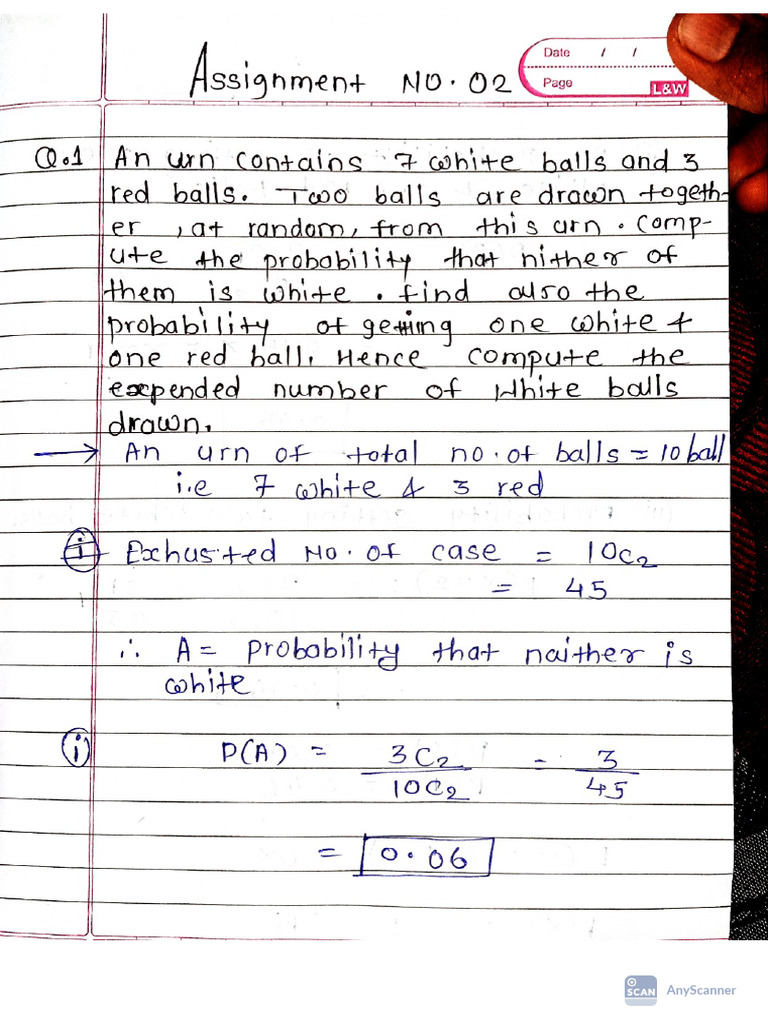 Assignment NO. 02
Date / /
Page
L&W
Q.1 An urn contains 7 white balls and 3
red balls. Two balls are drawn togeth-
er , at random, from this urn. comp-
ute the probability that nither of
them is white. find also the
probability of getting one white &
one red ball. Hence compute the
expended number of white balls
drawn.
→ An urn of total no. of balls = 10 ball
i.e 7 white & 3 red
i Exhusted No. of case = 10C2
= 45
∴ A = probability that naither is
white
i P(A) = 3C2/10C2 = 3/45
= 0.06
SCAN AnyScanner